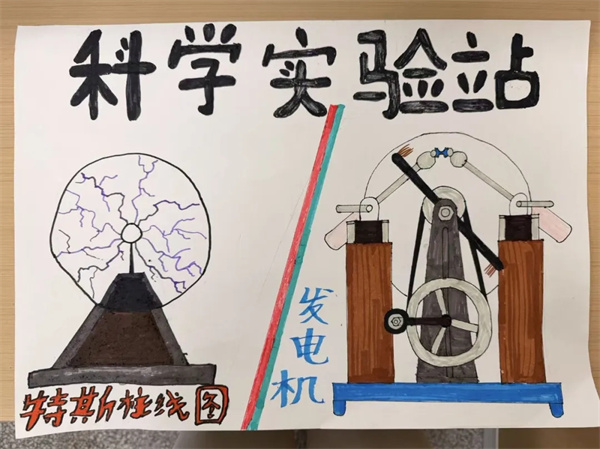 科学实验站
特斯拉线圈
发电机